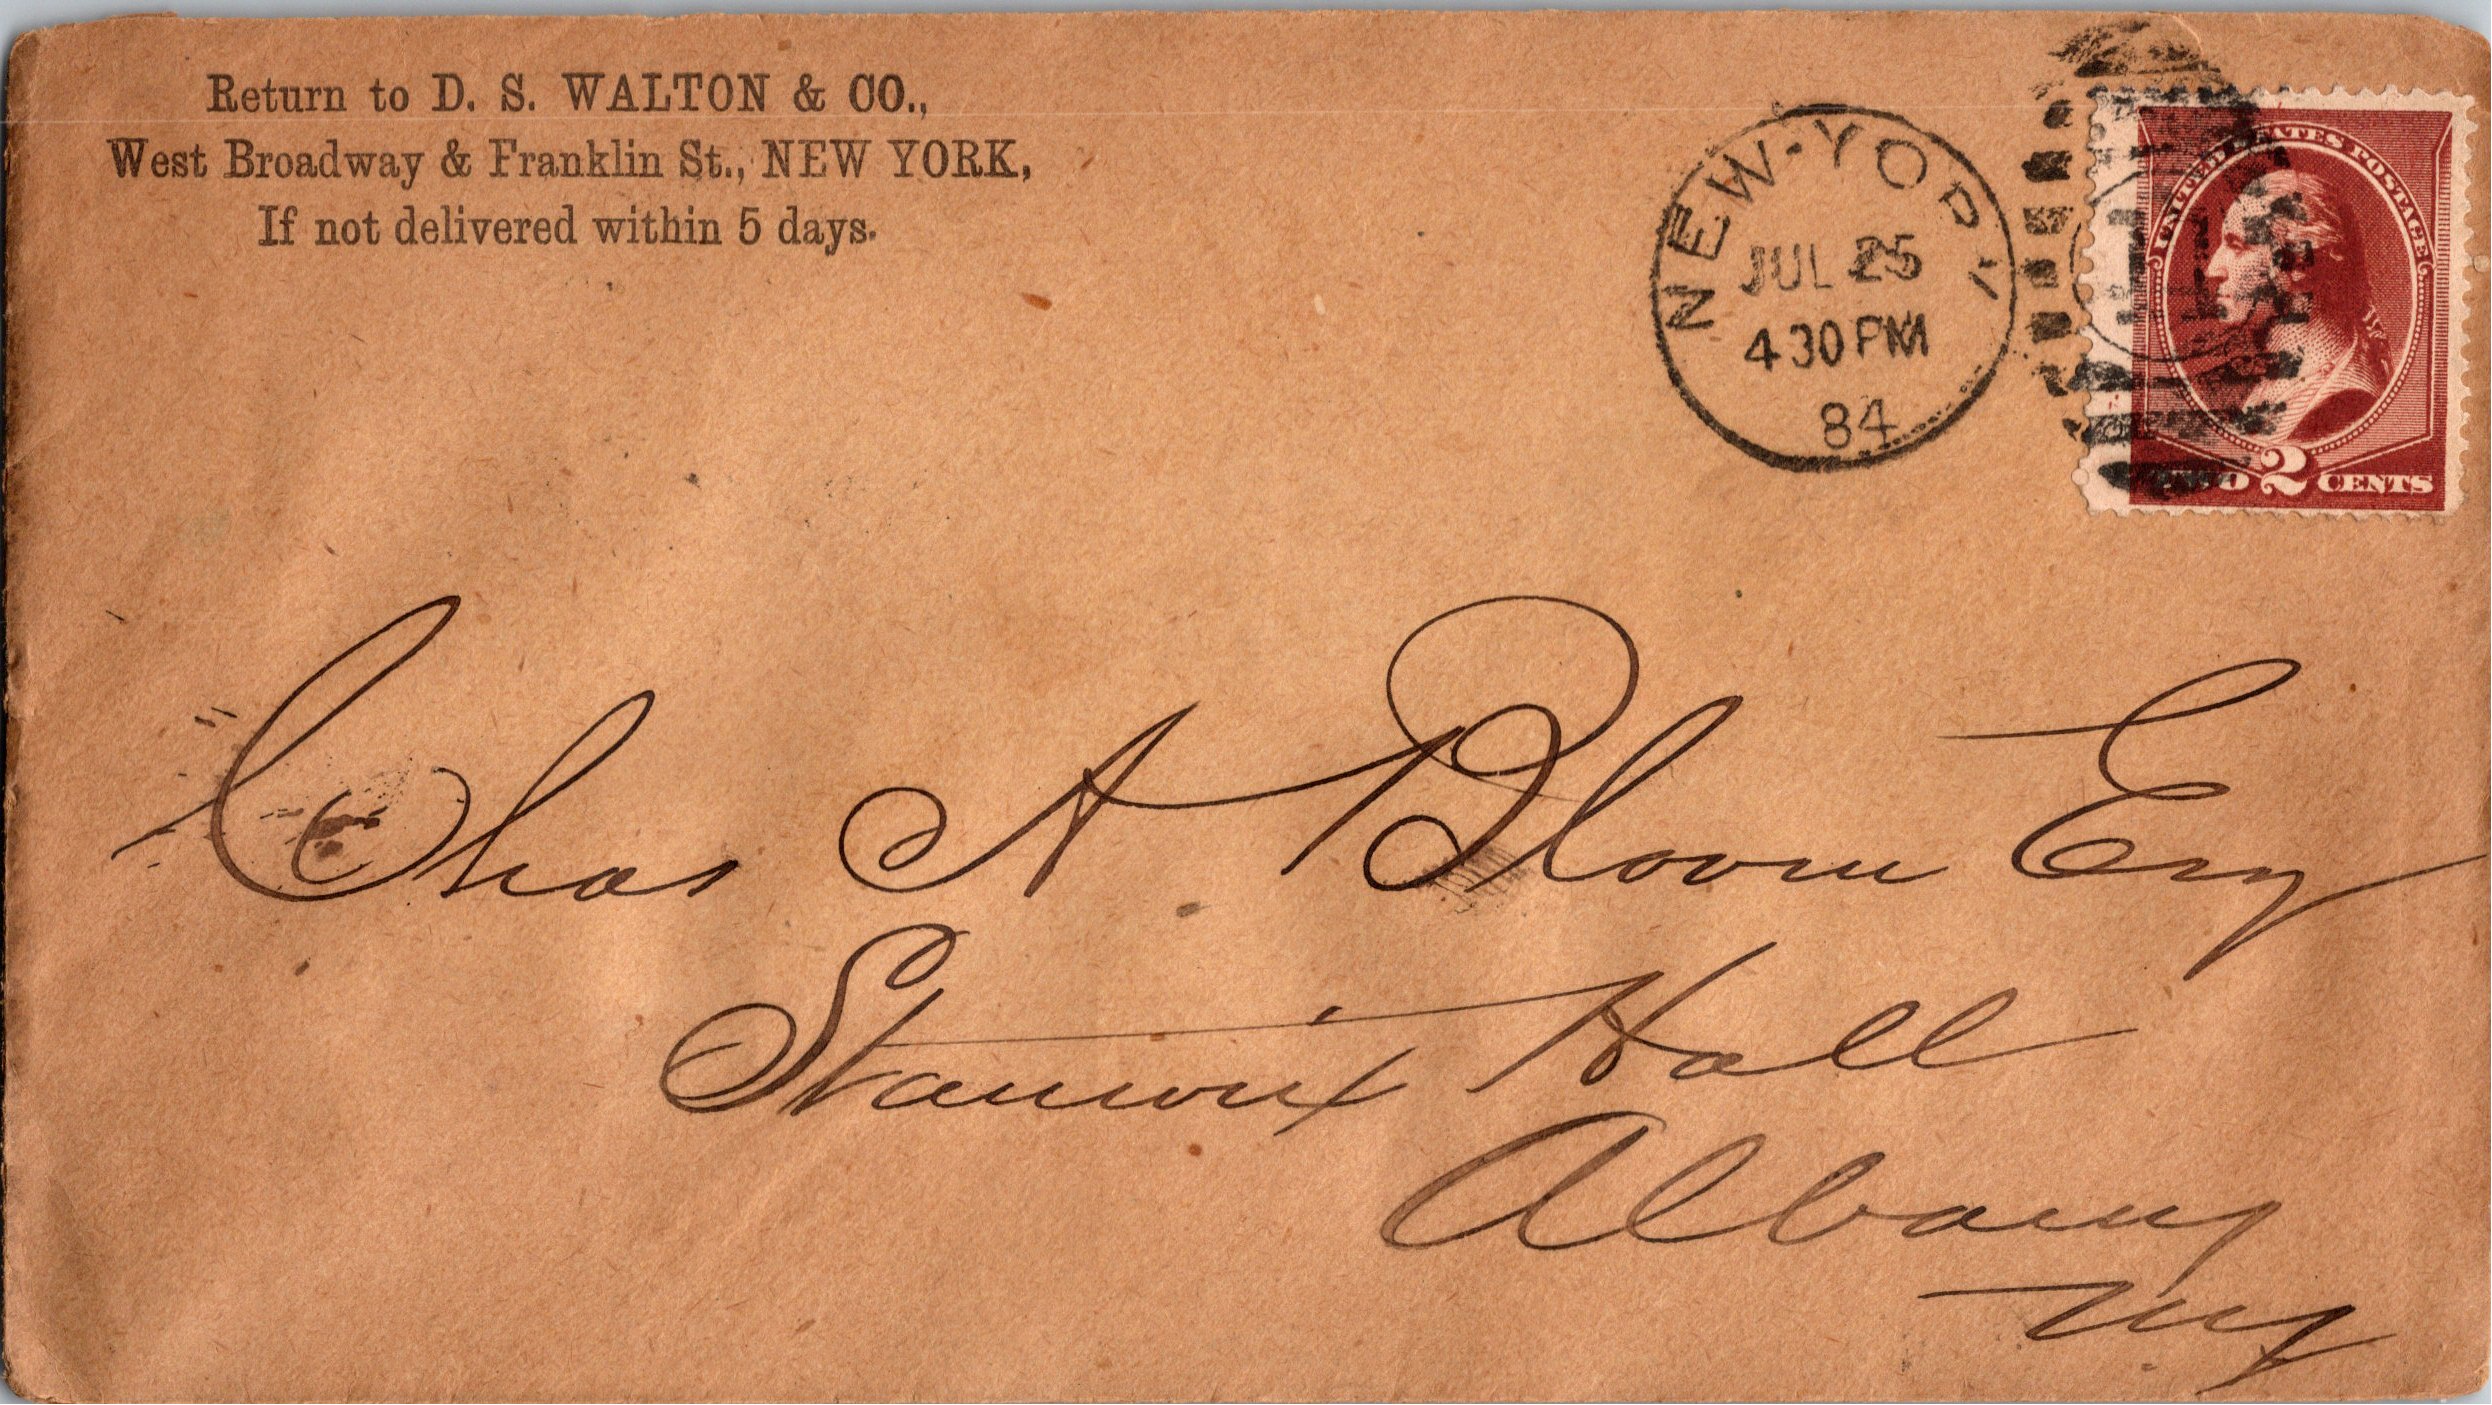 Return to D. S. WALTON & CO.,
West Broadway & Franklin St., NEW YORK,
If not delivered within 5 days.
NEW-YORK
JUL 25
430PM
84
UNITED STATES POSTAGE
TWO 2 CENTS
Chas A. Bloom Esq
Stanwix Hall
Albany
NY